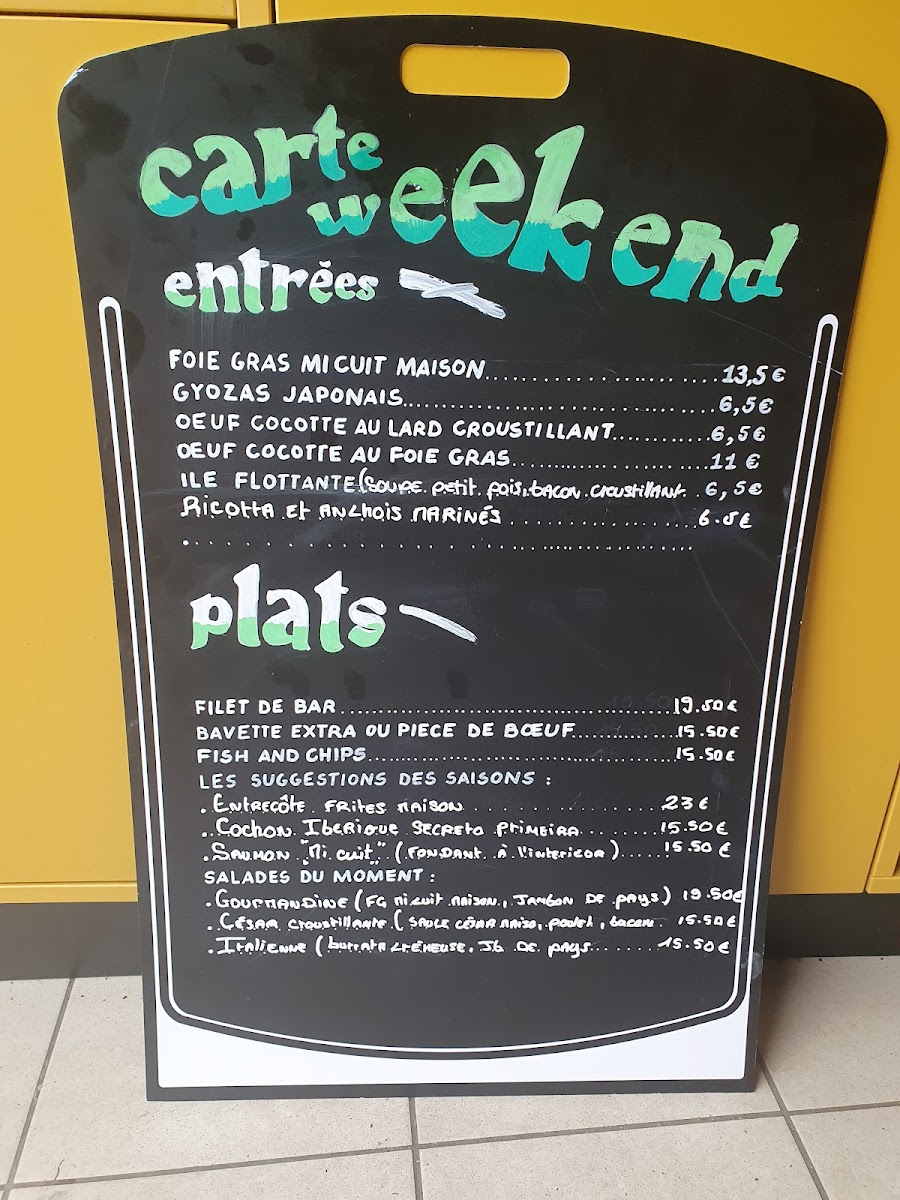 carte
week end
entrées
FOIE GRAS MICUIT MAISON.......................13,5€
GYOZAS JAPONAIS.......................6,5€
OEUF COCOTTE AU LARD CROUSTILLANT...........6,5€
OEUF COCOTTE AU FOIE GRAS.......................11 €
ILE FLOTTANTE(SOUPE petit pois, bacon croustillant. 6,5€
RICOTTA Et ANCHOIS MARINÉS.......................6.5€
plats
FILET DE BAR.......................19.50€
BAVETTE EXTRA OU PIECE DE BŒUF...........15.50€
FISH AND CHIPS.......................15.50€
LES SUGGESTIONS DES SAISONS :
. ENTRECÔTE FRITES MAISON.................23€
. COCHON IBERIQUE SECRETO PRIMEIRA........15.50€
. SAUMON "Mi cuit" (FONDANT À l'INTERIEOR)......15.50€
SALADES DU MOMENT :
. GOURMANDINE (FG Mi cuit MAISON, JAMBON DE pAYS) 19.50€
. CÉSAR croustillante (SAUCE CÉSAR MAISO, poulet, bacon. 15.50€
. ITALIENNE (burrata CRÉMEUSE, JB DE pAYS........15.50€